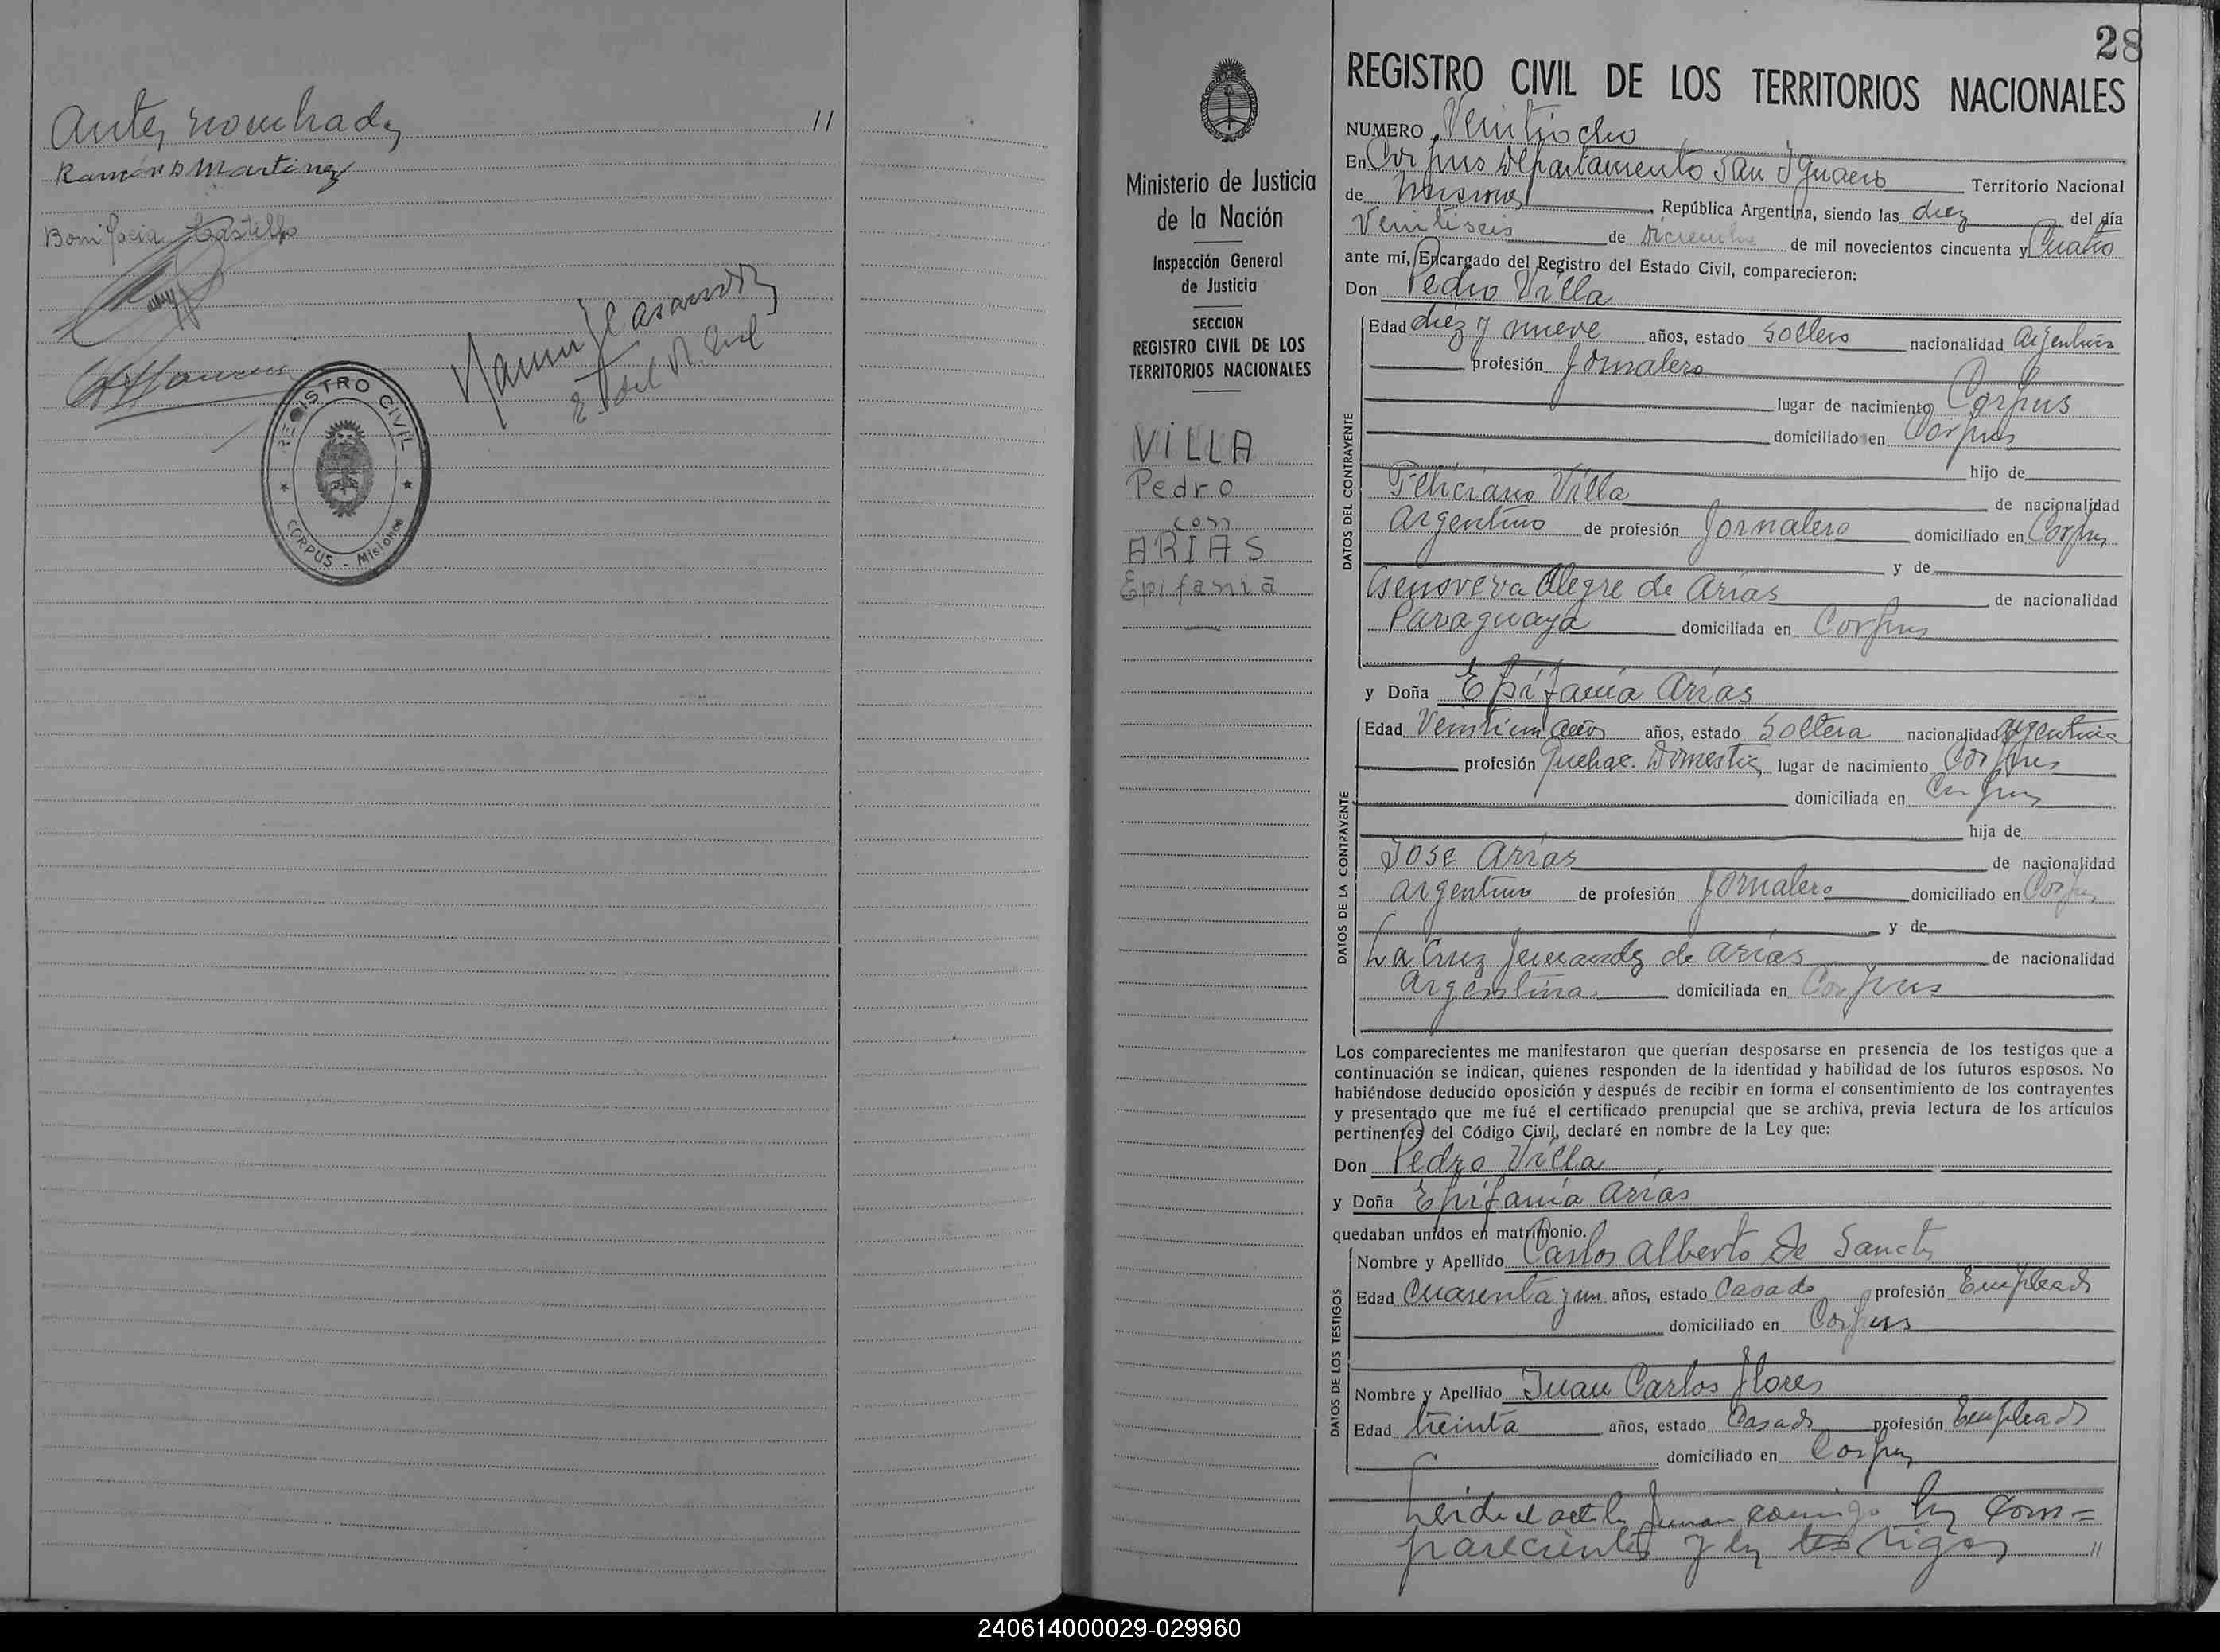 Antes nombrados "
Ramón D Martinez
Bonifacia Castillo
E. del R. Civil
REGISTRO CIVIL
CORPUS - Misiones
28
REGISTRO CIVIL DE LOS TERRITORIOS NACIONALES
Ministerio de Justicia
de la Nación
Inspección General
de Justicia
SECCION
REGISTRO CIVIL DE LOS
TERRITORIOS NACIONALES
VILLA
Pedro
con
ARIAS
Epifania
NUMERO Veintiocho
En Corpus Departamento San Ignacio Territorio Nacional
de Misiones, República Argentina, siendo las diez del día
Veintiseis de diciembre de mil novecientos cincuenta y Cuatro
ante mí, Encargado del Registro del Estado Civil, comparecieron:
Don Pedro Villa
DATOS DEL CONTRAYENTE
Edad diez y nueve años, estado Soltero nacionalidad argentina
profesión Jornalero
lugar de nacimiento Corpus
domiciliado en Corpus
hijo de
Feliciano Villa de nacionalidad
argentino de profesión Jornalero domiciliado en Corpus
y de
Genoveva Alegre de Arias de nacionalidad
Paraguaya domiciliada en Corpus
y Doña Epifania Arias
DATOS DE LA CONTRAYENTE
Edad Veintiun años años, estado Soltera nacionalidad argentina
profesión Quehac. Domestic, lugar de nacimiento Corpus
domiciliada en Corpus
hija de
Jose Arias de nacionalidad
argentino de profesión Jornalero domiciliado en Corpus
y de
La Cruz Fernandez de Arias de nacionalidad
Argentina domiciliada en Corpus
Los comparecientes me manifestaron que querían desposarse en presencia de los testigos que a
continuación se indican, quienes responden de la identidad y habilidad de los futuros esposos. No
habiéndose deducido oposición y después de recibir en forma el consentimiento de los contrayentes
y presentado que me fué el certificado prenupcial que se archiva, previa lectura de los artículos
pertinentes del Código Civil, declaré en nombre de la Ley que:
Don Pedro Villa
y Doña Epifania Arias
quedaban unidos en matrimonio.
DATOS DE LOS TESTIGOS
Nombre y Apellido Carlos Alberto De Sanctis
Edad Cuarenta y un años, estado Casado profesión Empleado
domiciliado en Corpus
Nombre y Apellido Juan Carlos Flores
Edad treinta años, estado Casado profesión Empleado
domiciliado en Corpus
Leida el acta la firman conmigo los com=
parecientes y los testigos "
240614000029-029960